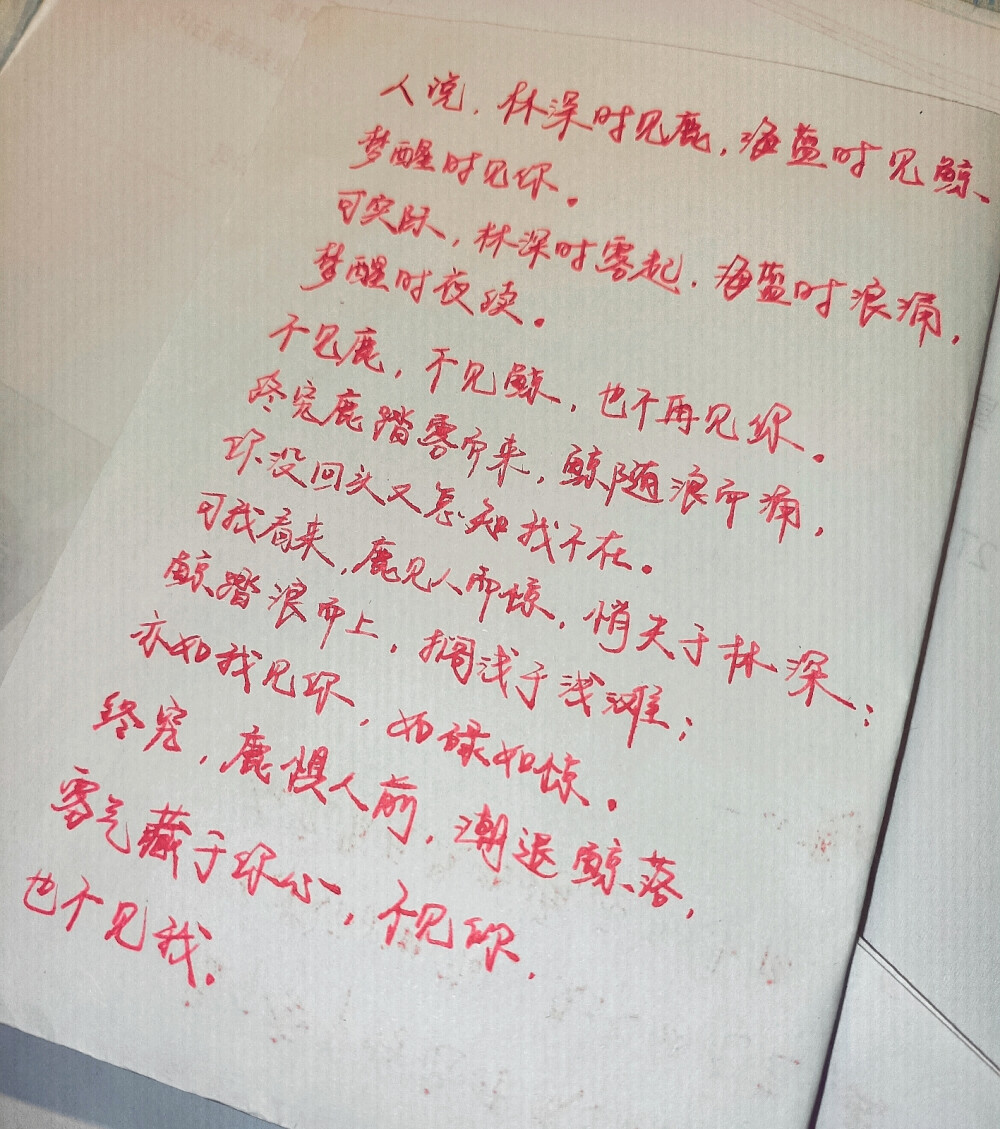 人说，林深时见鹿，海蓝时见鲸、
梦醒时见你。
可实际，林深时雾起，海蓝时浪涌，
梦醒时夜续。
不见鹿，不见鲸，也不再见你。
终究鹿踏雾而来，鲸随浪而涌，
你没回头又怎知我不在。
可我看来，鹿见人而惊，悄失于林深；
鲸踏浪而上，搁浅于浅滩；
亦如我见你，如碌如惊。
终究，鹿惧人前，潮退鲸落，
雾气藏于你心，不见你，
也不见我。